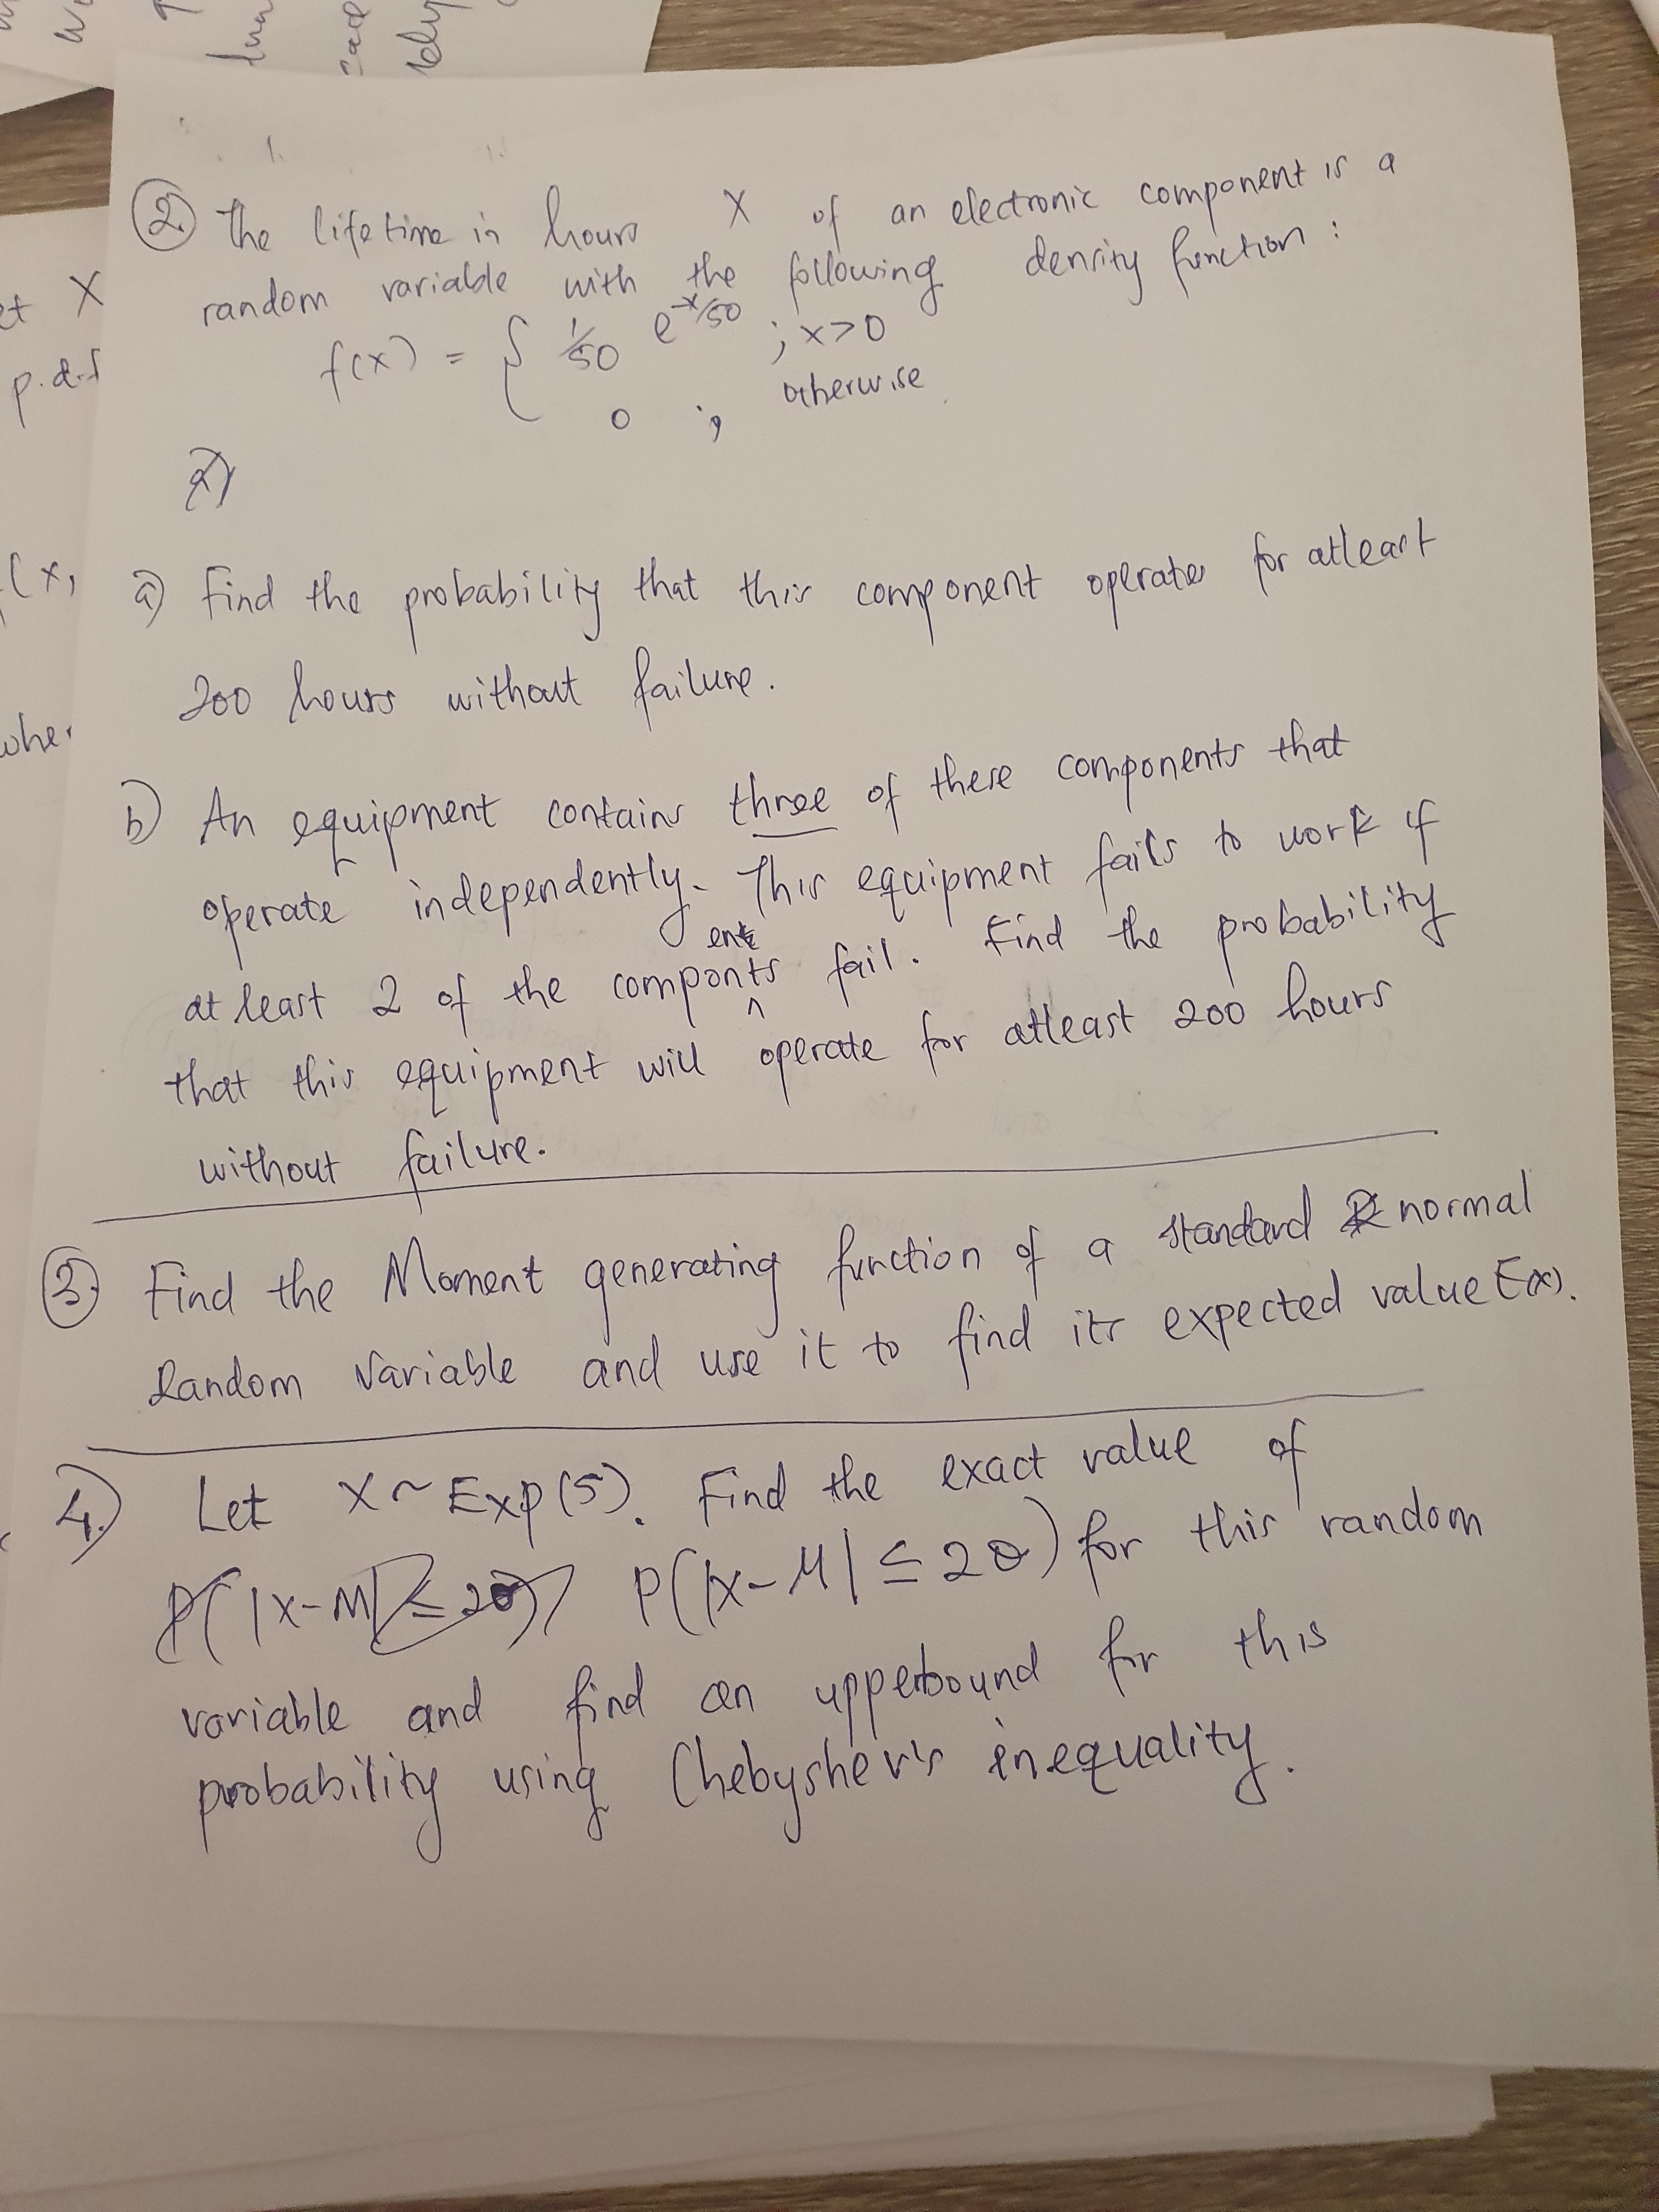 ② The lifetime in hours X of an electronic component is a
random variable with the following density function:
f(x) = { 1/50 e^-x/50 ; x>0
0 ; otherwise
a) Find the probability that this component operates for atleast
200 hours without failure.
b) An equipment contains three of these components that
operate independently. This equipment fails to work if
at least 2 of the components fail. Find the probability
that this equipment will operate for atleast 200 hours
without failure.
③ Find the Moment generating function of a standard normal
Random Variable and use it to find its expected value E(x).
4.) Let X ~ Exp(5). Find the exact value of
P(|X-M| ≤ 2σ) P(|X-M| ≤ 2σ) for this random
variable and find an upperbound for this
probability using Chebyshev's inequality.
et X
p.d.f
(x,
wher